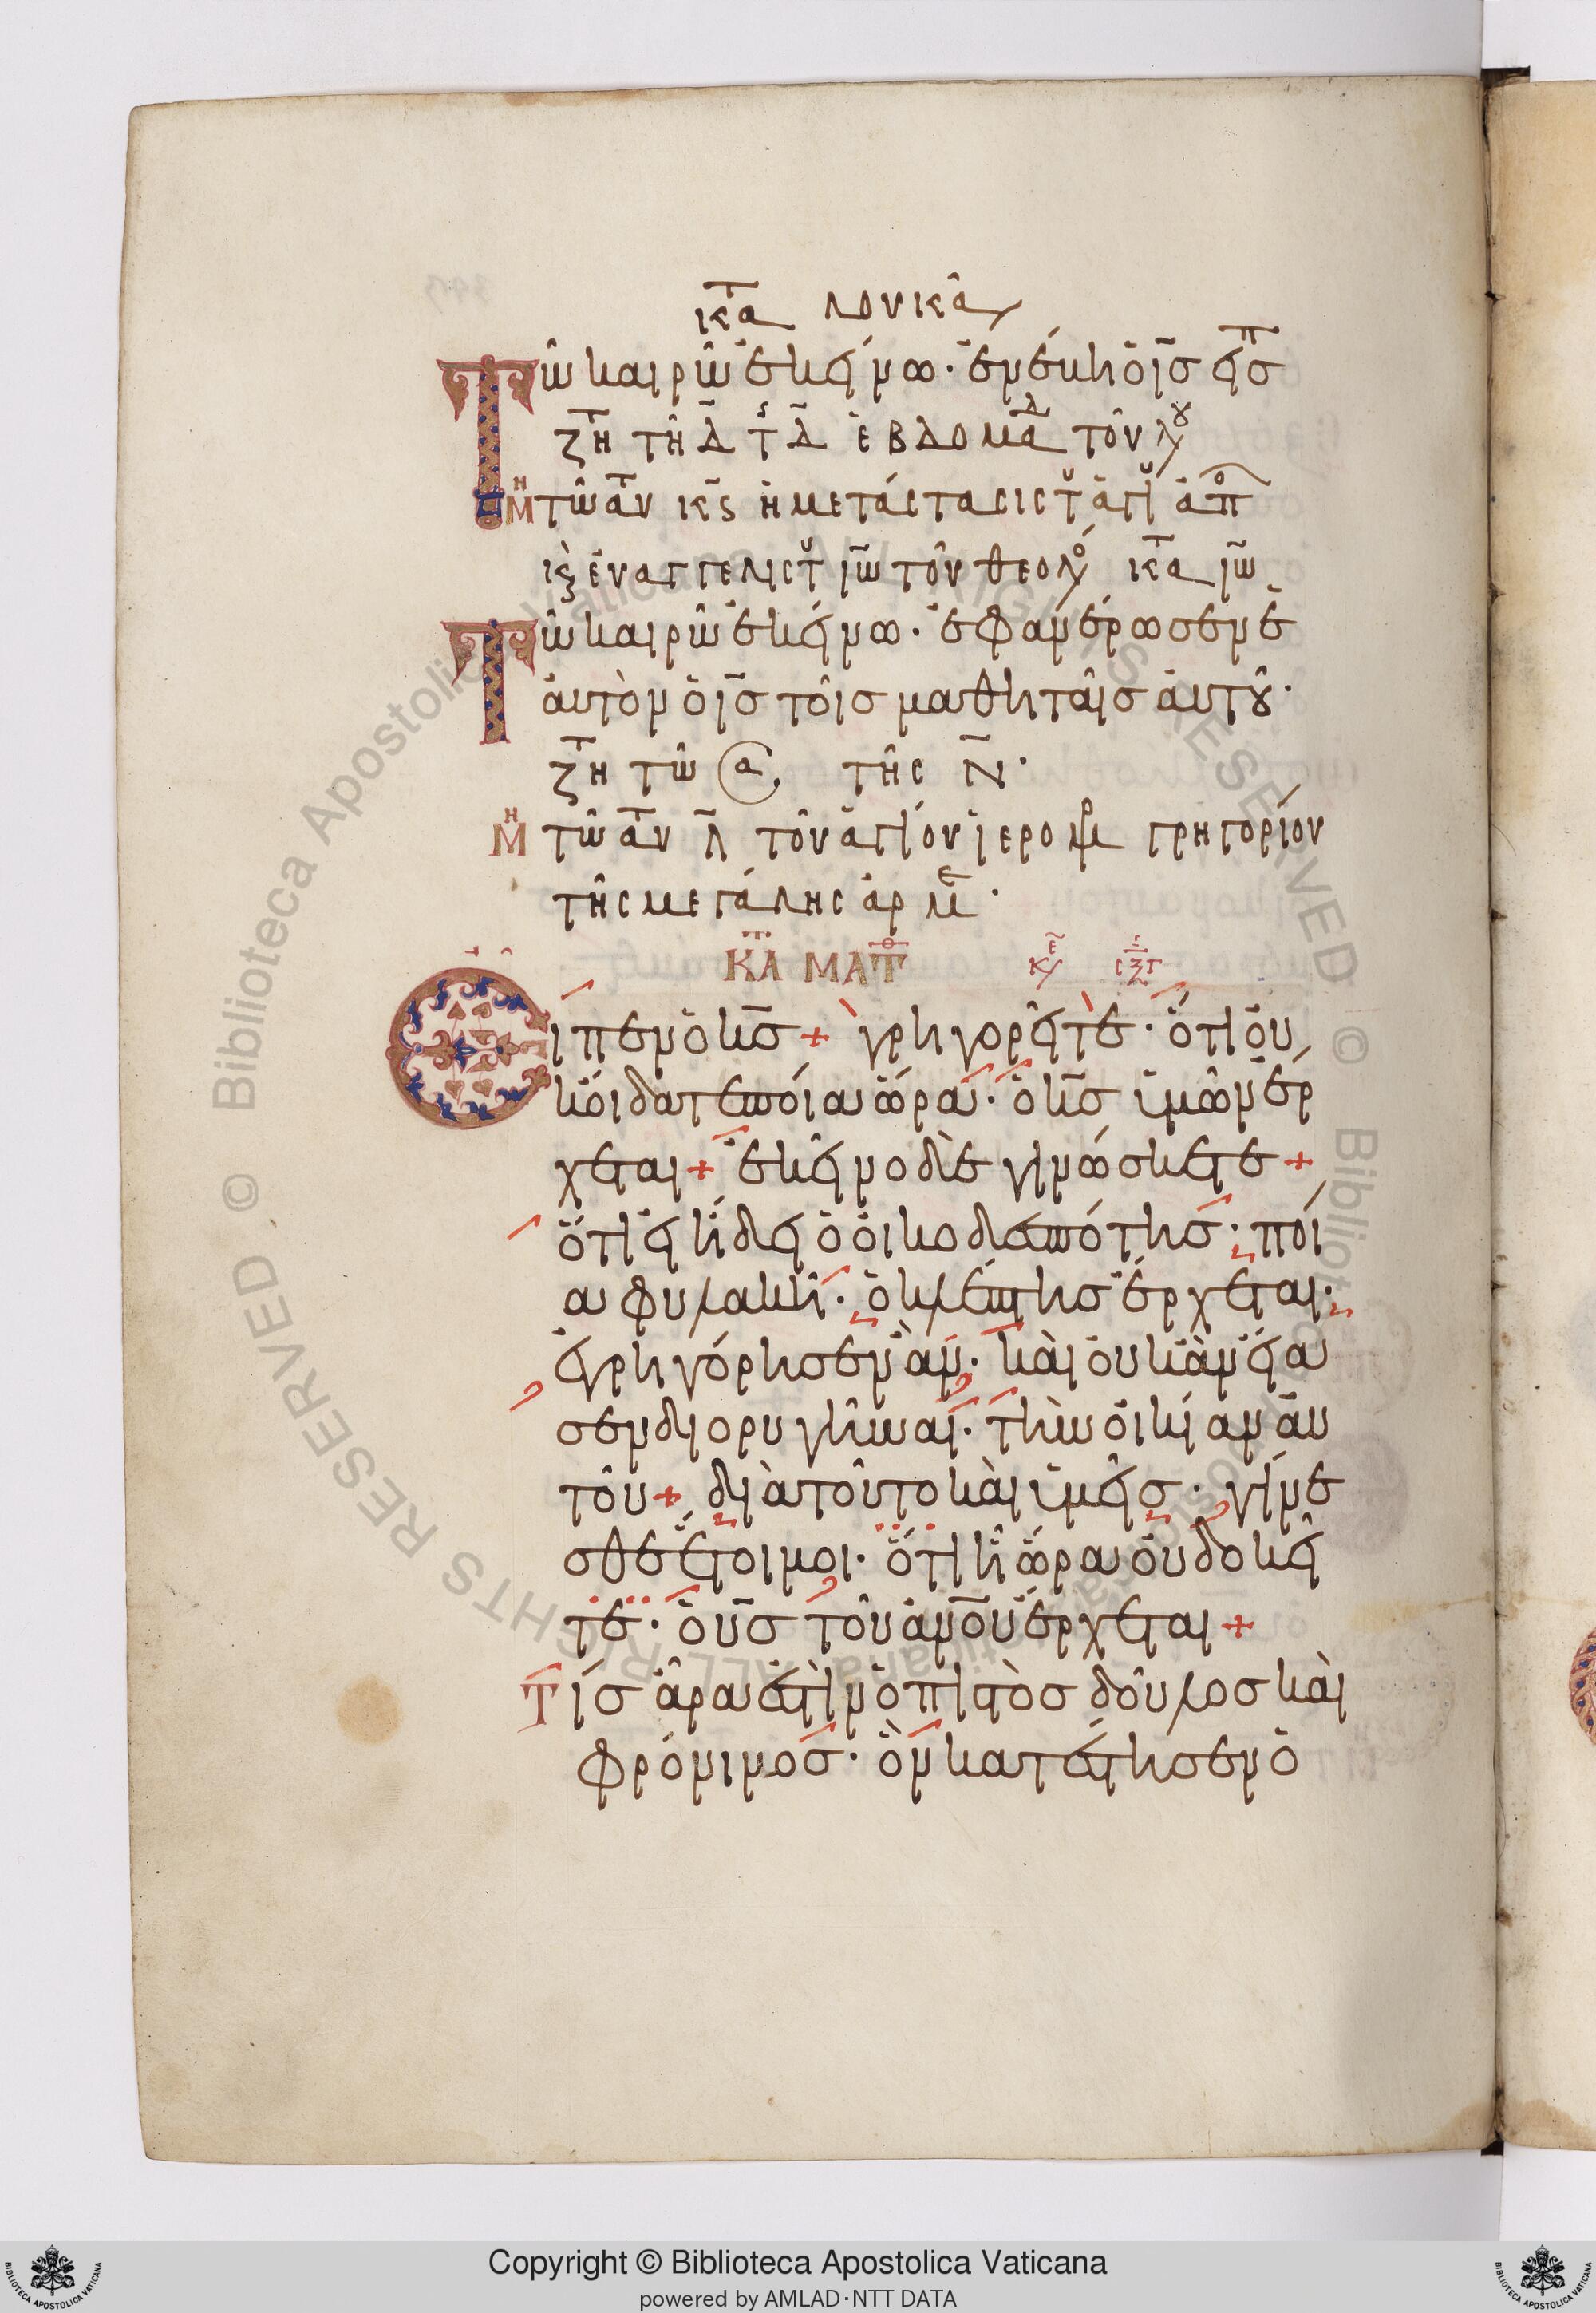 κα^τ λουκᾶ
Τῶ καιρῶ ἐκείνω· ἐνέκη ὁ ις εἰς
ζη^τ τῆ δ̄ τ̄ δ̄ ἑβδομα^δ τοῦ λου
Μη τῶ αὐ^τ κϛ ἡ μετάστασις τοῦ ἁγίου ἀπο
κ̀ εὐαγγελιστοῦ ιω τοῦ θεολό κα^τ ιω
Τῶ καιρῶ ἐκείνω· ἐφανέρωσεν ἑ
αυτὸν ὁ ις τοῖς μαθηταῖς αὐτοῦ·
ζη^τ τῶ α. τῆς Ν·
Μη τῶ αὐ^τ λ̄ τοῦ ἁγίου ἱερομρ γρηγορίου
τῆς μεγάλης ἀρμε·
ΚΑ ΜΑΤΘ κυ ε σξγ
Εἶπεν ὁ κς + γρηγορεῖτε· ὅτι οὐ
κ οἴδατε ποία ὥρα· ὁ κς ὑμῶν ἔρ
χεται + ἐκεῖνο δὲ γινώσκετε +
ὅτι εἰ ἤδει ὁ οἰκοδεσπότης· ποί
α φυλακῆ· ὁ κλέπτης ἔρχεται·
ἐγρηγόρησεν ἄν· καὶ οὐκ ἂν εἴα
σεν διορυγῆναι· τὴν οἰκίαν αὐ
τοῦ + διὰ τοῦτο καὶ ὑμεῖς· γίνε
σθε ἕτοιμοι· ὅτι ἧ ὥρα οὐ δοκεῖ
τε· ὁ υς τοῦ ανου ἔρχεται +
Τίς ἄρα ἐστὶν ὁ πιστὸς δοῦλος καὶ
φρόνιμος· ὃν κατέστησεν ὁ
Copyright © Biblioteca Apostolica Vaticana
powered by AMLAD·NTT DATA